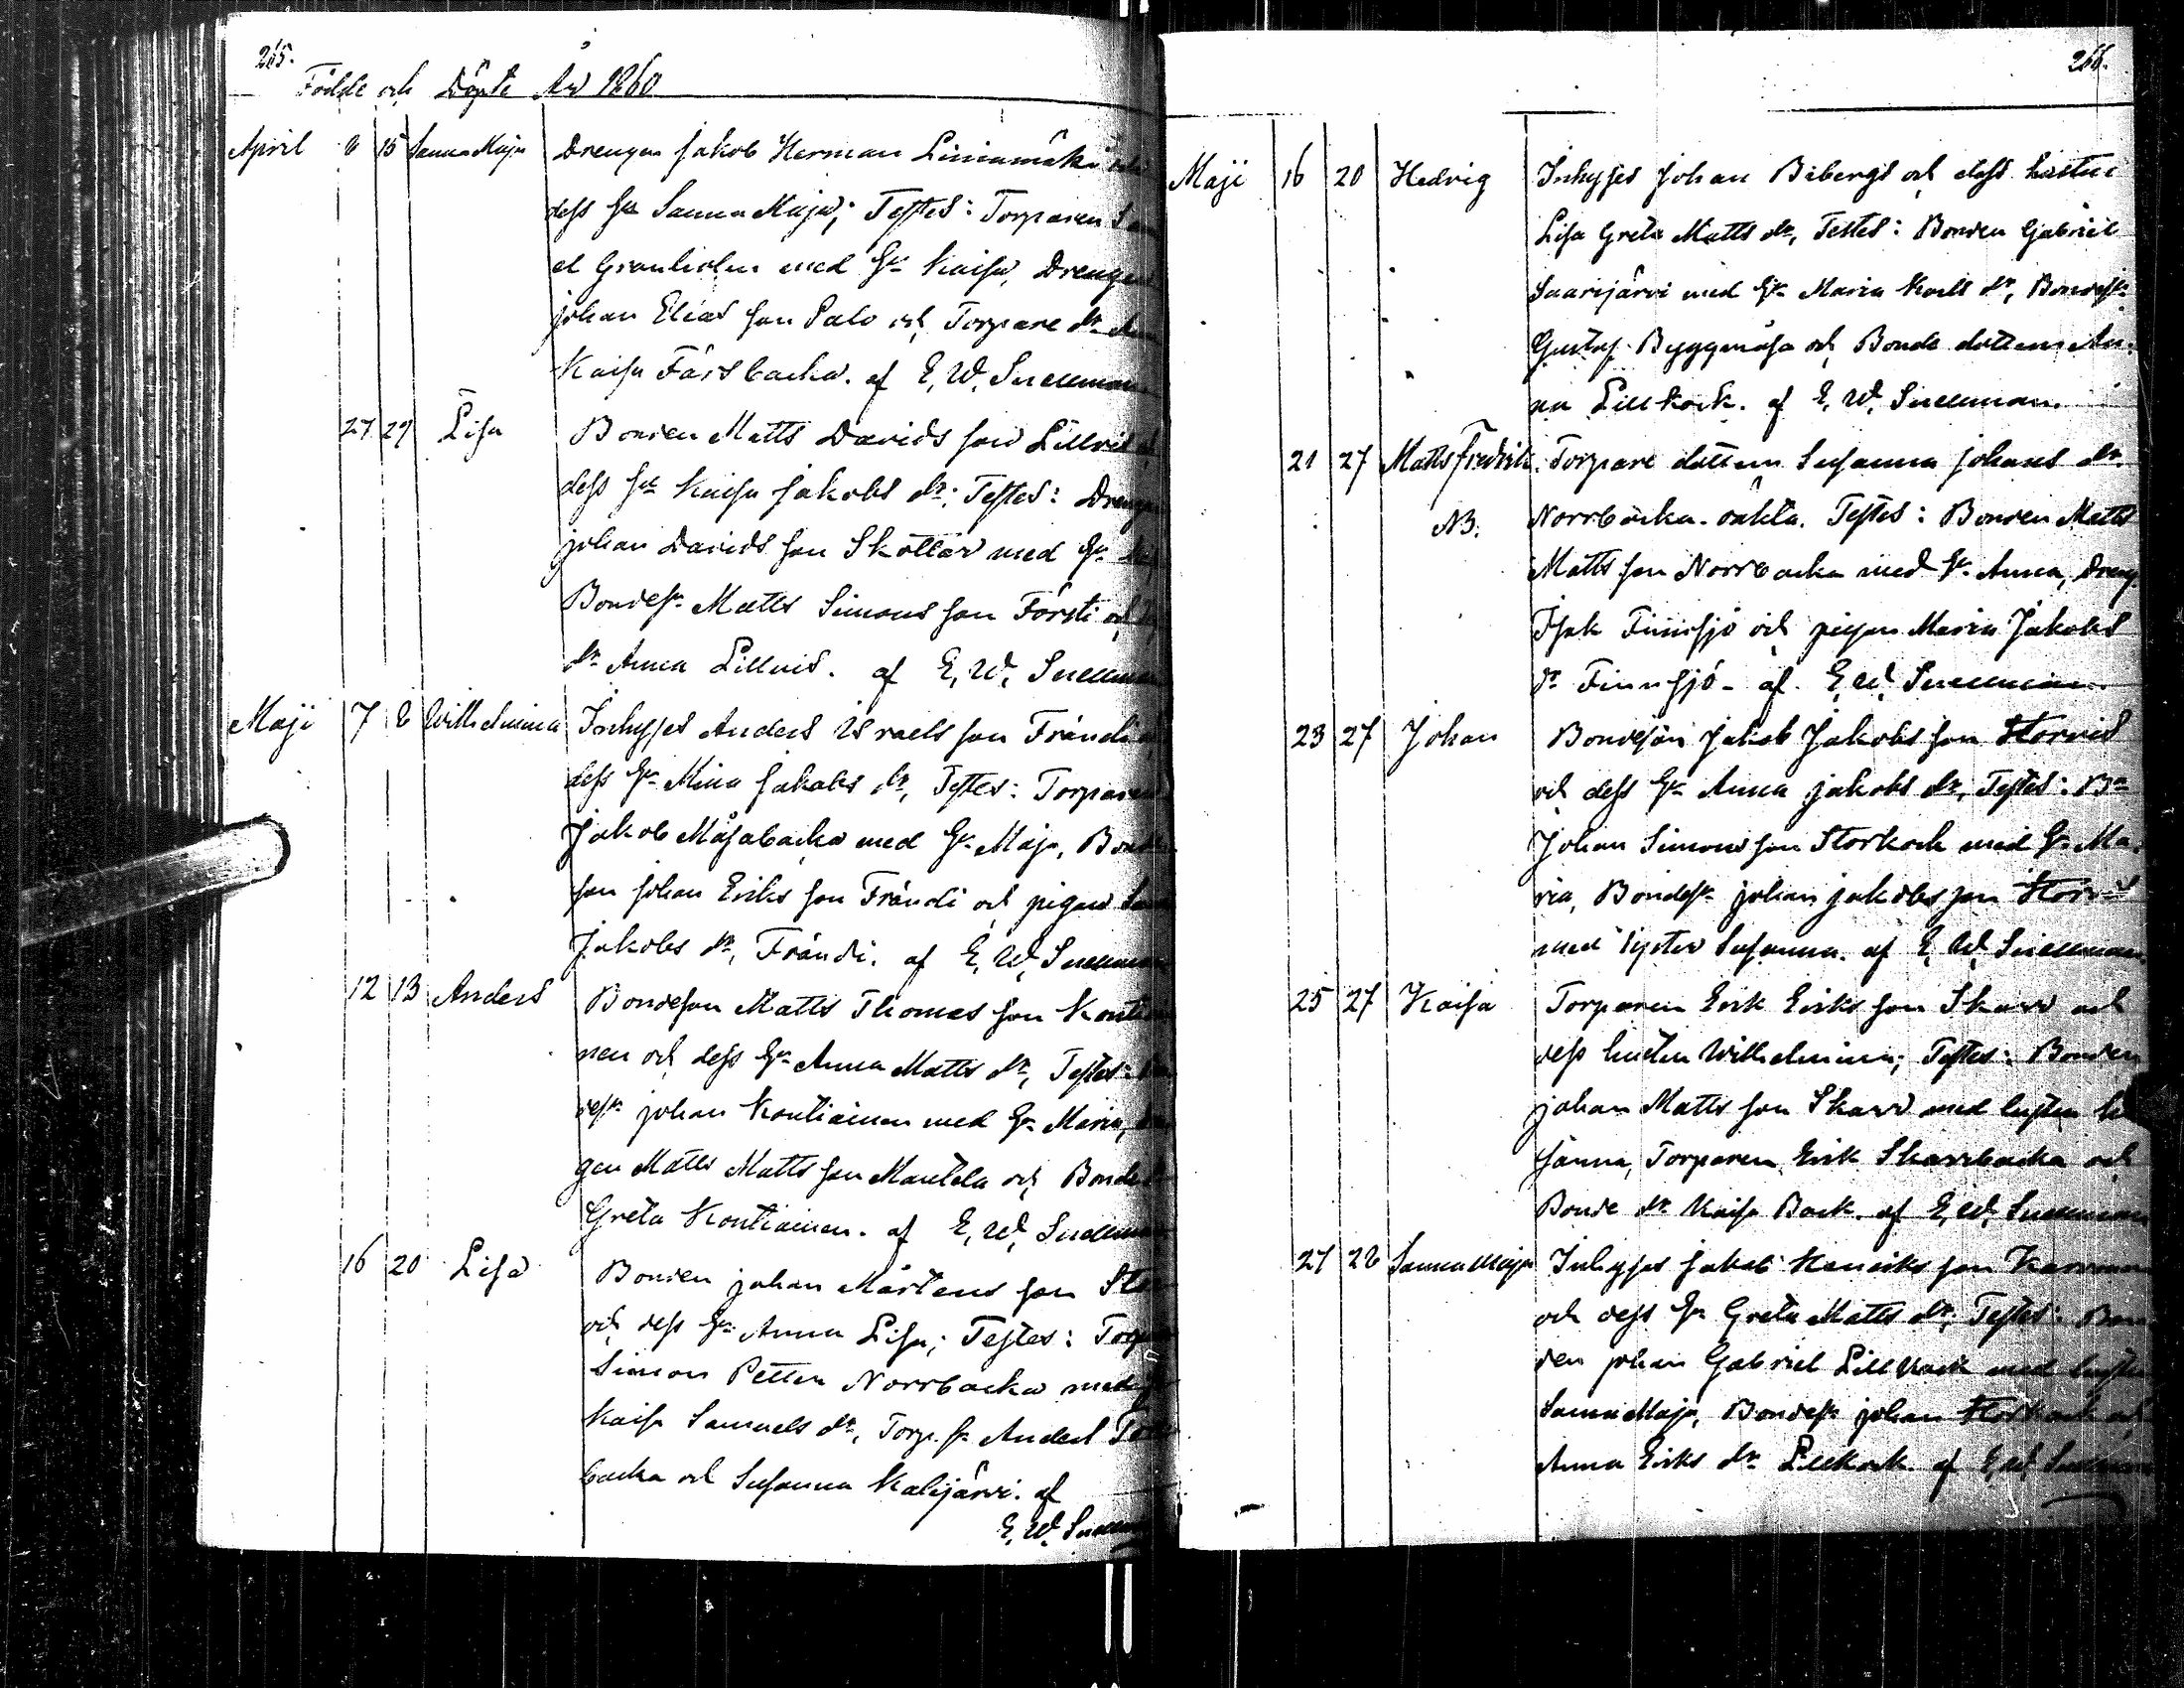 265.
Födde och Döpte År 1860
April 8 15 Sanna Maja Drengen Jakob Herman Liinamäki och
dess hu Sanna Maja; Testes: Torparen Sam
el Granholm med hu Kaisa, Drengen
Johan Elias son Palo och Torpare dr
Kaisa Färsbacka. af E. W. Snellman
27 29 Lisa Bonden Matts Davids son Lillvis
dess hu Kaisa Jakobs dr; Testes: Drengen
Johan Davids son Skottar med hu
Bondes. Matts Simons son Försti och
dr Anna Lillvis. af E. W. Snellman
Maji 7 8 Wilhelmina Inhyses Anders Israels son Frändi
dess hu Mina Jakobs dr, Testes: Torparen
Jakob Måsabacka med hu Maja, Bonde
son Johan Eriks son Frändi och pigan
Jakobs dr, Frändi. af E. W. Snellman
12 13 Anders Bondeson Matts Thomas son Kontiai
nen och dess hu Anna Matts dr, Testes:
des. Johan Kontiainen med hu Maria,
gen Matts Matts son Mantela och Bonde
Greta Kontiainen. af E. W. Snellman
16 20 Lisa Bonden Johan Mårtens son
och dess hu Anna Lisa; Testes: Torp
Simon Petter Norrbacka med
Kaisa Samuels dr, Torp. s. Anders
backa och Susanna Kalijärvi. af
E. W. Snellman
266.
Maji 16 20 Hedvig Inhyses Johan Bibergs och dess hustru
Lisa Greta Matts dr, Testes: Bonden Gabriel
Saarijärvi med hu Maria Karls dr, Bondes.
Gustaf Byggmäsa och Bonde dottern An
na Lillkock. af E. W. Snellman.
21 27 Matts Fredrik. Torpare dottern Susanna Johans dr
NB. Norrbacka. oäkta. Testes: Bonden Matts
Matts son Norrbacka med hu Anna, Dreng.
Isak Finnsjö och pigan Maria Jakobs
dr Finnsjö. af E. W. Snellman
23 27 Johan Bondeson Jakob Jakobs son Storvis
och dess hu Anna Jakobs dr, Testes: Bn
Johan Simons son Storkock med hu Ma
ria, Bondes. Johan Jakobs son Storvis
med syster Susanna. af E. W. Snellman
25 27 Kaisa Torparen Erik Eriks son Skarv och
dess hustru Wilhelmina; Testes: Bonden
Johan Matts son Skarv med hustru
sanna, Torparen Erik Skarrbacka och
Bonde dr Kaisa Back. af E. W. Snellman
27 28 Sanna Maja Inhyses Jakob Henriks son
och dess hu Greta Matts dr, Testes: Bon
den Johan Gabriel Lillkock med hustru
Sanna Maja, Bondes. Johan Storkock och
Anna Eriks dr Lillkock. af E. W. Snellman